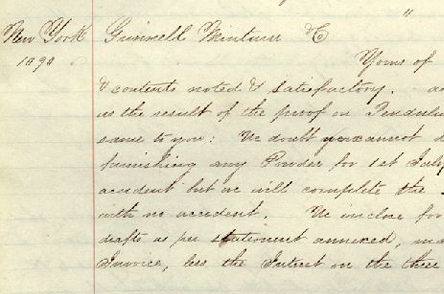 "
New York Grinnell Minturn & C
1090 Yours of
& contents noted & satisfactory.
us the result of the proof on Pendulu
same to you: We doubt cannot d
furnishing any Powder for 1st July
accident but we will complete the
with no accident. We inclose for
drafts as per statement annexed,
Invoice, less the Interest on the